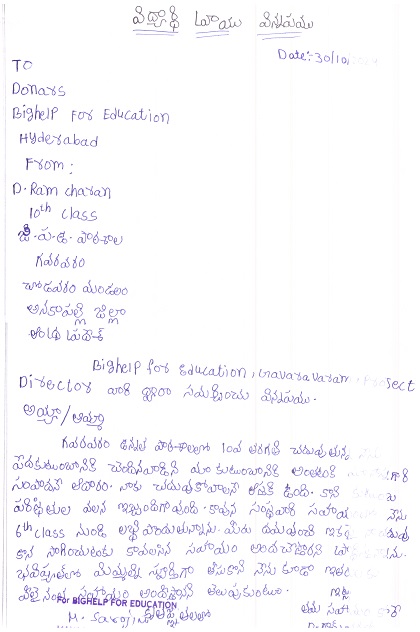 విద్యార్థి వ్రాయు విన్నపము
Date: 30/10
To
Donars
Bighelp For Education
Hyderabad
From:
D. Ram charan
10th class
జి.ప.ఉ. పాఠశాల
గవరవరం
చోడవరం మండలం
అనకాపల్లి జిల్లా
ఆంధ్రప్రదేశ్
Bighelp for Education, Gavaravaram
Director వారి ద్వారా సమర్పించు విన్నపము.
అయ్యా/అమ్మా
గవరవరం ఉన్నత పాఠశాలలో 10వ తరగతి చదువుతున్న
పేదకుటుంబానికి చెందినవాడిని మా కుటుంబానికి అంతంత
సంపాదనే ఆధారం. నాకు చదువుకోవాలనే ఆసక్తి ఉంది. కాని
పరిస్థితుల వలన ఇబ్బందిగా వుంది. కావున సంస్థవారి సహాయం నేను
6th class నుండి లబ్ధి పొందుతున్నాను. మీరు దయవుంచి
కొన సాగించుటకు కావలసిన సహాయం అందచేస్తారని
భవిష్యత్‌లో మిమ్మల్ని స్ఫూర్తిగా తీసుకొని నేను కూడా
సహాయం అందిస్తానని తెలుపుకుంటూ. ఇట్లు
For BIGHELP FOR EDUCATION
తమ సహాయం